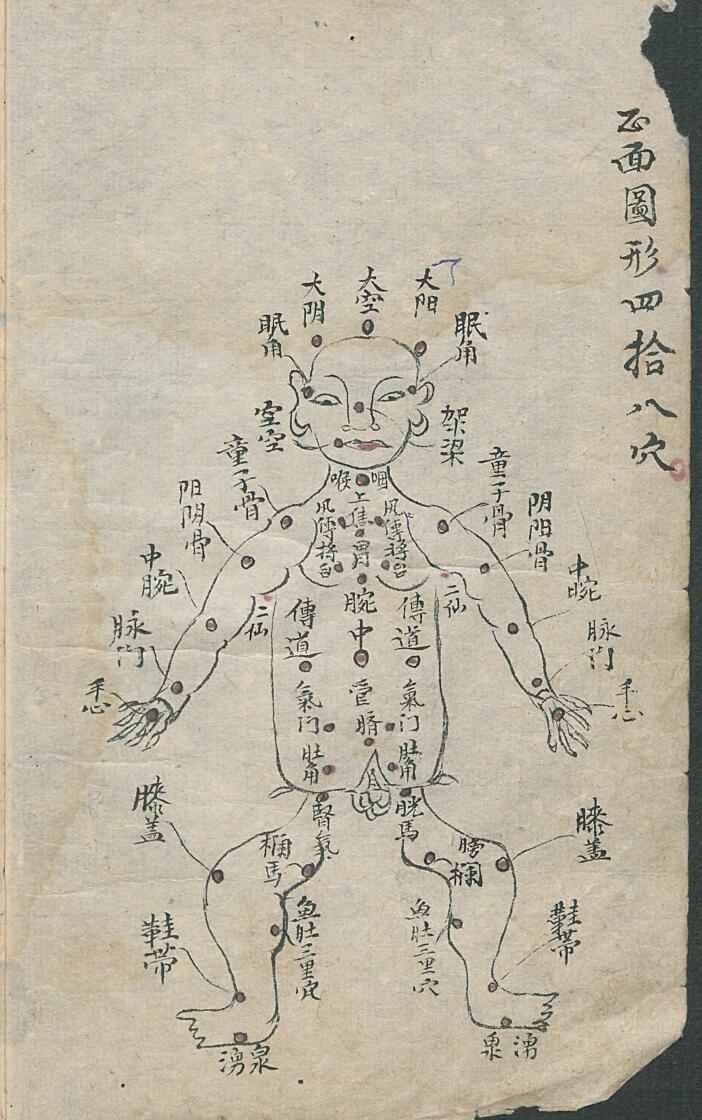 正面圖形四拾八穴
大阳
大空
大阴
眠角
眠角
架梁
空空
童子骨
童子骨
咽
喉
上焦
胃
腕
中
管
脐
风傳將台
风傳將台
阴阳骨
阳阴骨
中腕
中腕
二仙
二仙
脉门
脉门
手心
手心
傳道
傳道
氣门
氣门
肚角
肚角
腎氣
膝盖
膝盖
鞋帶
鞋帶
魚肚三里穴
魚肚三里穴
湧泉
湧泉